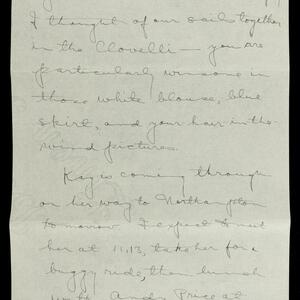 I thought of our sails together
in the Clovelli — you are
particularly winsome in
those white blouse, blue
skirt, and your hair-in-the-
wind pictures.
Kay is coming through
on her way to Northampton
tomorrow. I expect to meet
her at 11.13, take her for a
buggy ride, then lunch
with Andy Price at